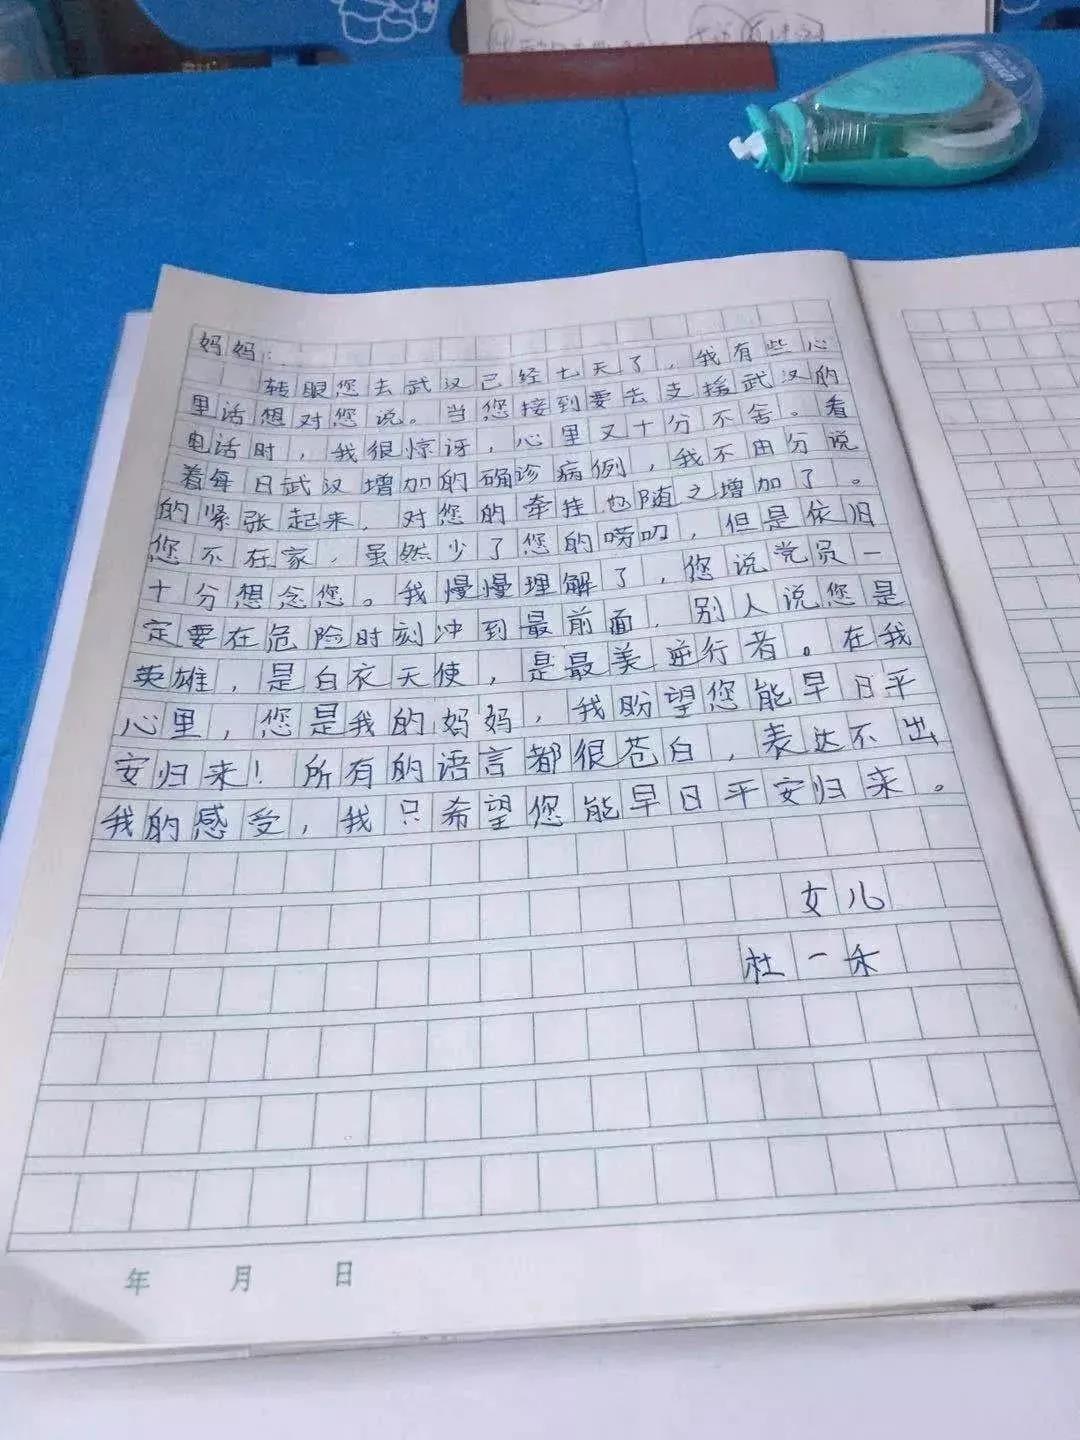 妈妈：
转眼您去武汉已经七天了，我有些心
里话想对您说。当您接到要去支援武汉的
电话时，我很惊讶，心里又十分不舍。看
着每日武汉增加的确诊病例，我不由分说
的紧张起来，对您的牵挂也随之增加了。
您不在家，虽然少了您的唠叨，但是依旧
十分想念您。我慢慢理解了，您说党员一
定要在危险时刻冲到最前面，别人说您是
英雄，是白衣天使，是最美逆行者。在我
心里，您是我的妈妈，我盼望您能早日平
安归来！所有的语言都很苍白，表达不出
我的感受，我只希望您能早日平安归来。
女儿
杜一禾
年 月 日